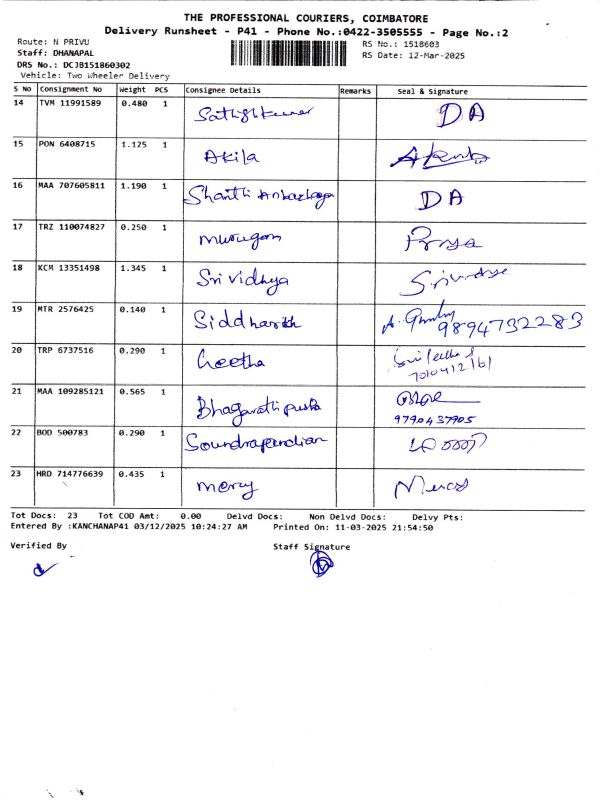 THE PROFESSIONAL COURIERS, COIMBATORE
Delivery Runsheet - P41 - Phone No.:0422-3505555 - Page No.:2
Route: N PRIVU
RS No.: 1518603
Staff: DHANAPAL
RS Date: 12-Mar-2025
DRS No.: DCJB151860302
Vehicle: Two Wheeler Delivery
S No Consignment No Weight PCS Consignee Details Remarks Seal & Signature
14 TVM 11991589 0.480 1 Sathishkumar DA
15 PON 6408715 1.125 1 Akila
16 MAA 707605811 1.190 1 Shanthi Anbazhagan DA
17 TRZ 110074827 0.250 1 murugan Priya
18 KCM 13351498 1.345 1 Sri vidhya Srividya
19 MTR 2576425 0.140 1 Siddharth 9894732283
20 TRP 6737516 0.290 1 Geetha
7010412161
21 MAA 109285121 0.565 1 Bhagavathi
9790437905
22 BOD 500783 0.290 1 Soundrapandian
23 HRD 714776639 0.435 1 mercy Mercy
Tot Docs: 23 Tot COD Amt: 0.00 Delvd Docs: Non Delvd Docs: Delvy Pts:
Entered By :KANCHANAP41 03/12/2025 10:24:27 AM Printed On: 11-03-2025 21:54:50
Verified By Staff Signature